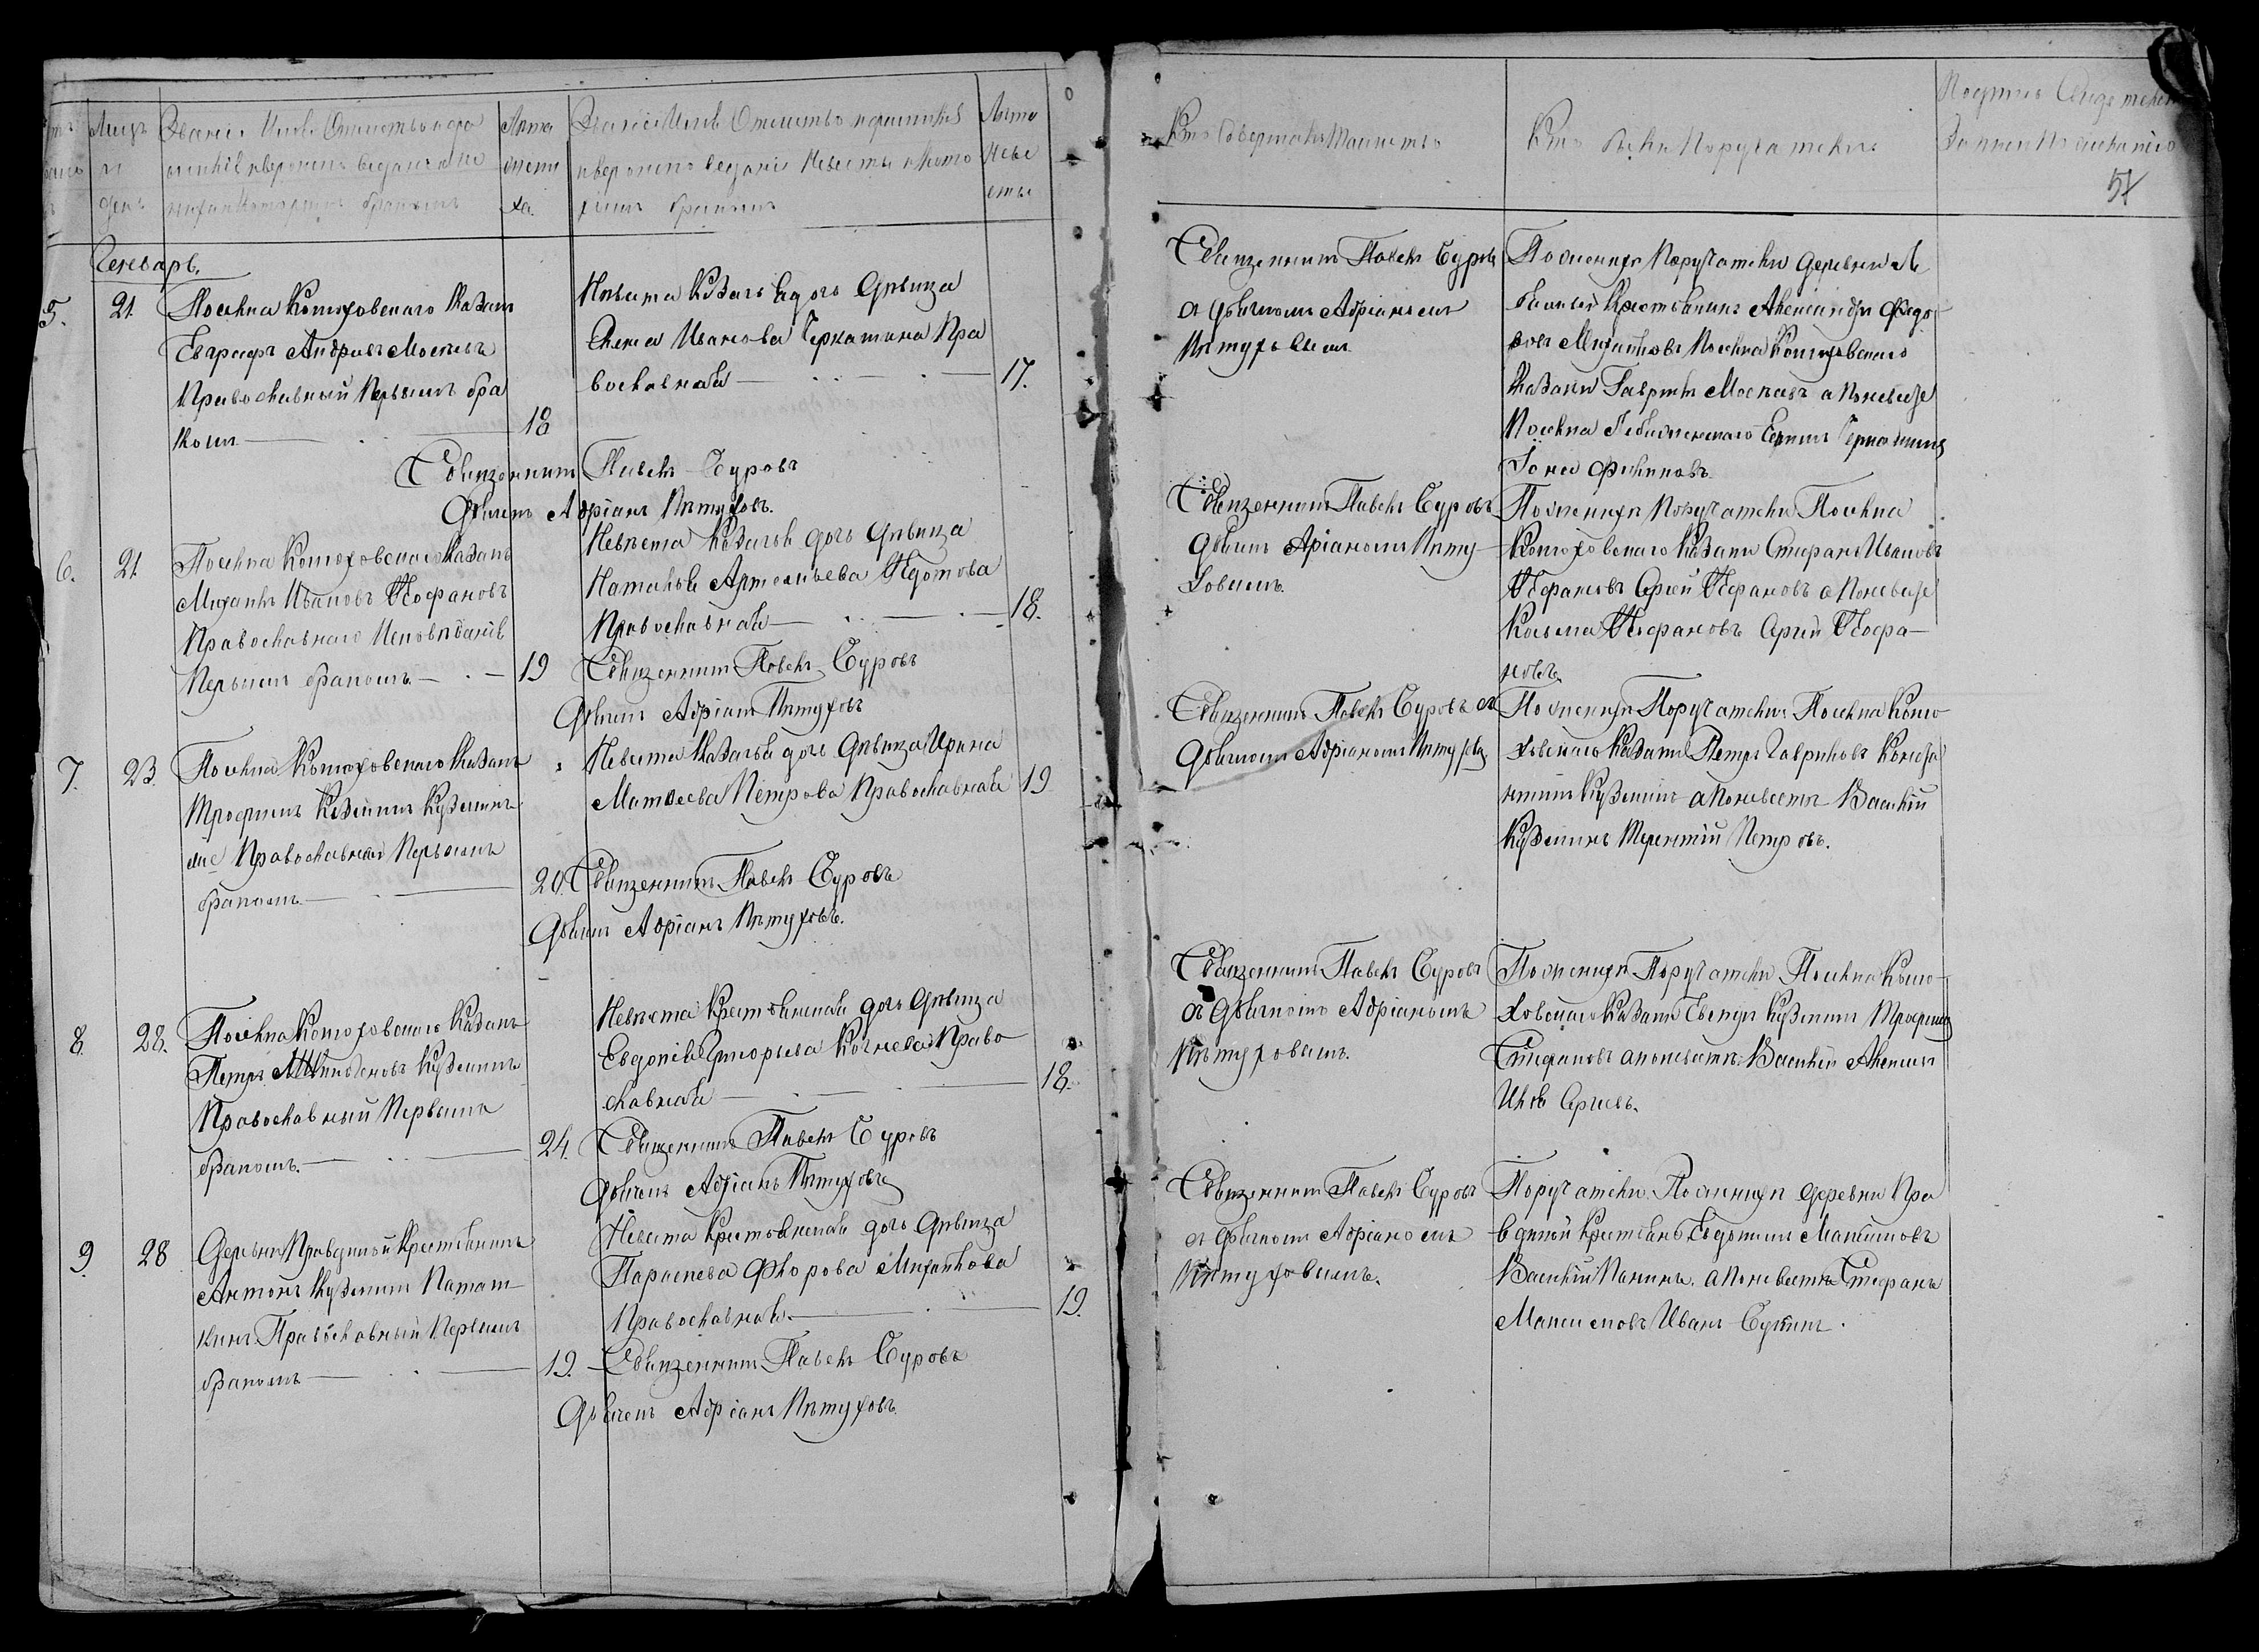 Мѣсяцъ и день
Званіе Имя Отчество и фамилія и вероисповеданіе Жениха и которымъ бракомъ
Лета жениха.
Званіе Имя Отчество и фамилія и вероисповеданіе Невесты и которымъ бракомъ
Лета Невесты
Генварь.
5. 21.
Поселка Котоховскаго Казакъ
Евграфъ Андреевъ Москвъ
Православный Первымъ бра
комъ 18
Невеста Казачья дочь Дѣвица
Елена Иванова Черкашина Пра
вославная 17.
Священникъ Павелъ Суровъ
Дьячекъ Адріанъ Пѣтуховъ.
6. 21.
Поселка Котоховскаго Казакъ
Михаилъ Ивановъ Феофановъ
Православнаго Исповѣданія
Первымъ бракомъ 19
Невѣста Казачья дочь Дѣвица
Наталья Артемьева Федотова
Православная 18.
Священникъ Павелъ Суровъ
Дьячекъ Адріанъ Пѣтуховъ
7. 23.
Поселка Котоховскаго Казакъ
Трофимъ Кузминъ Кузминъ
Православный Первымъ
бракомъ 20.
Невеста Казачья дочь Дѣвица Ирина
Матвеева Петрова Православная 19
Священникъ Павелъ Суровъ
Дьячекъ Адріанъ Пѣтуховъ.
8. 28.
Поселка Котоховскаго Казакъ
Петръ Кузминъ
Православный Первымъ
бракомъ. 24.
Невѣста Крестьянская дочь Дѣвица
Евдокія Григорьева Кочнева Право
славная 18.
Священникъ Павелъ Суровъ
Дьячекъ Адріанъ Пѣтуховъ
9. 28
Деревни Правдиной Крестьянинъ
Антонъ Кузминъ Паташ
кинъ Православный Первымъ
бракомъ 19.
Невеста Крестьянская дочь Дѣвица
Параскева Флорова Михайлова
Православная 19.
Священникъ Павелъ Суровъ
Дьячекъ Адріанъ Пѣтуховъ
Кто Совершалъ Таинство
Кто были Поручители
57
Священникъ Павелъ Суровъ
съ Дьячкомъ Адріаномъ
Пѣтуховымъ
По женихе Поручатели деревни
Крестьянинъ Александръ Федо
ровъ Михайловъ Поселка Котоховскаго
Казакъ Гаврилъ Москвъ а по невесте
Поселка
Священникъ Павелъ Суровъ
Дьячкомъ Адріаномъ Пѣту
ховымъ.
По женихе Поручатели Поселка
Котоховскаго Казаки Стефанъ Ивановъ
Феофановъ Сергей Феофановъ а по невесте
Козьма Феофановъ Сергей Феофа
новъ.
Священникъ Павелъ Суровъ съ
Дьячкомъ Адріаномъ Пѣтуховы
По женихе Поручатели Поселка Кото
ховскаго Казаки Петръ Гавриловъ
Кузминъ а по невестѣ Василій
Кузминъ Терентій Петровъ.
Священникъ Павелъ Суровъ
съ Дьячкомъ Адріаномъ
Пѣтуховымъ.
По женихе Поручатели Поселка Кото
ховскаго Казаки Кузминъ Трофимъ
Стефановъ а по невестѣ Василій Алексеи
Илья Сергеевъ.
Священникъ Павелъ Суровъ
съ Дьячкомъ Адріаномъ
Пѣтуховымъ.
Поручатели По женихе деревни Пра
вдиной Крестьяне Евдокимъ Максимовъ
Василій Панинъ а по невестѣ Стефанъ
Максимовъ Иванъ